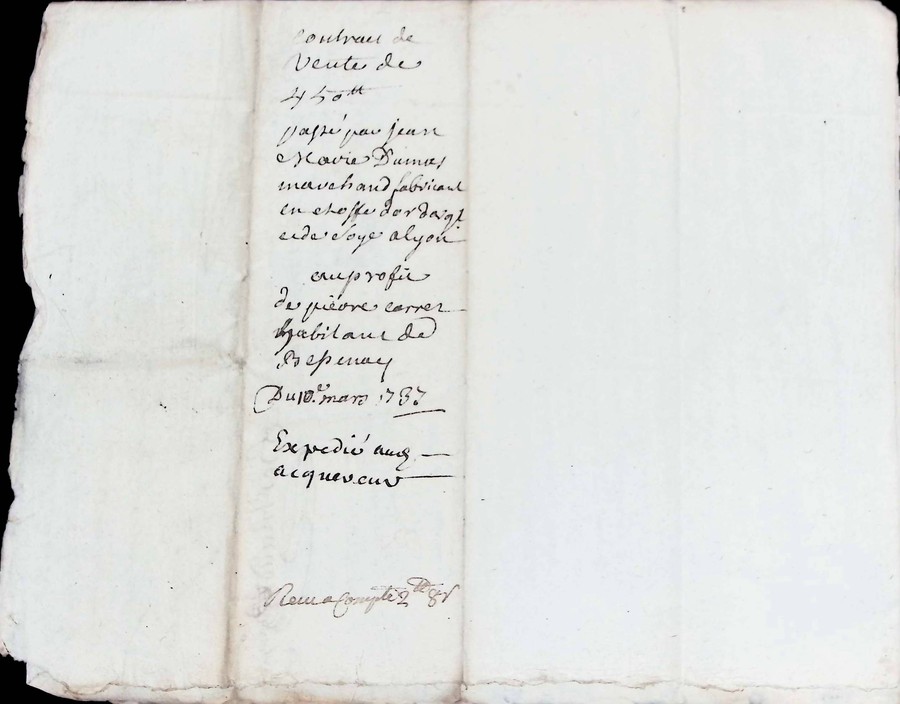 Contract de
Vente de
450 tt
passé par jean
Marie Dumas
marchand fabricant
en etoffe dor dargt
et de soye a lyon
au profit
de pierre carret
habitant de
Bessenay
Du 10e mars 1737
Expedié aud
acquereur
Receu a Compte 2 tt 8 s